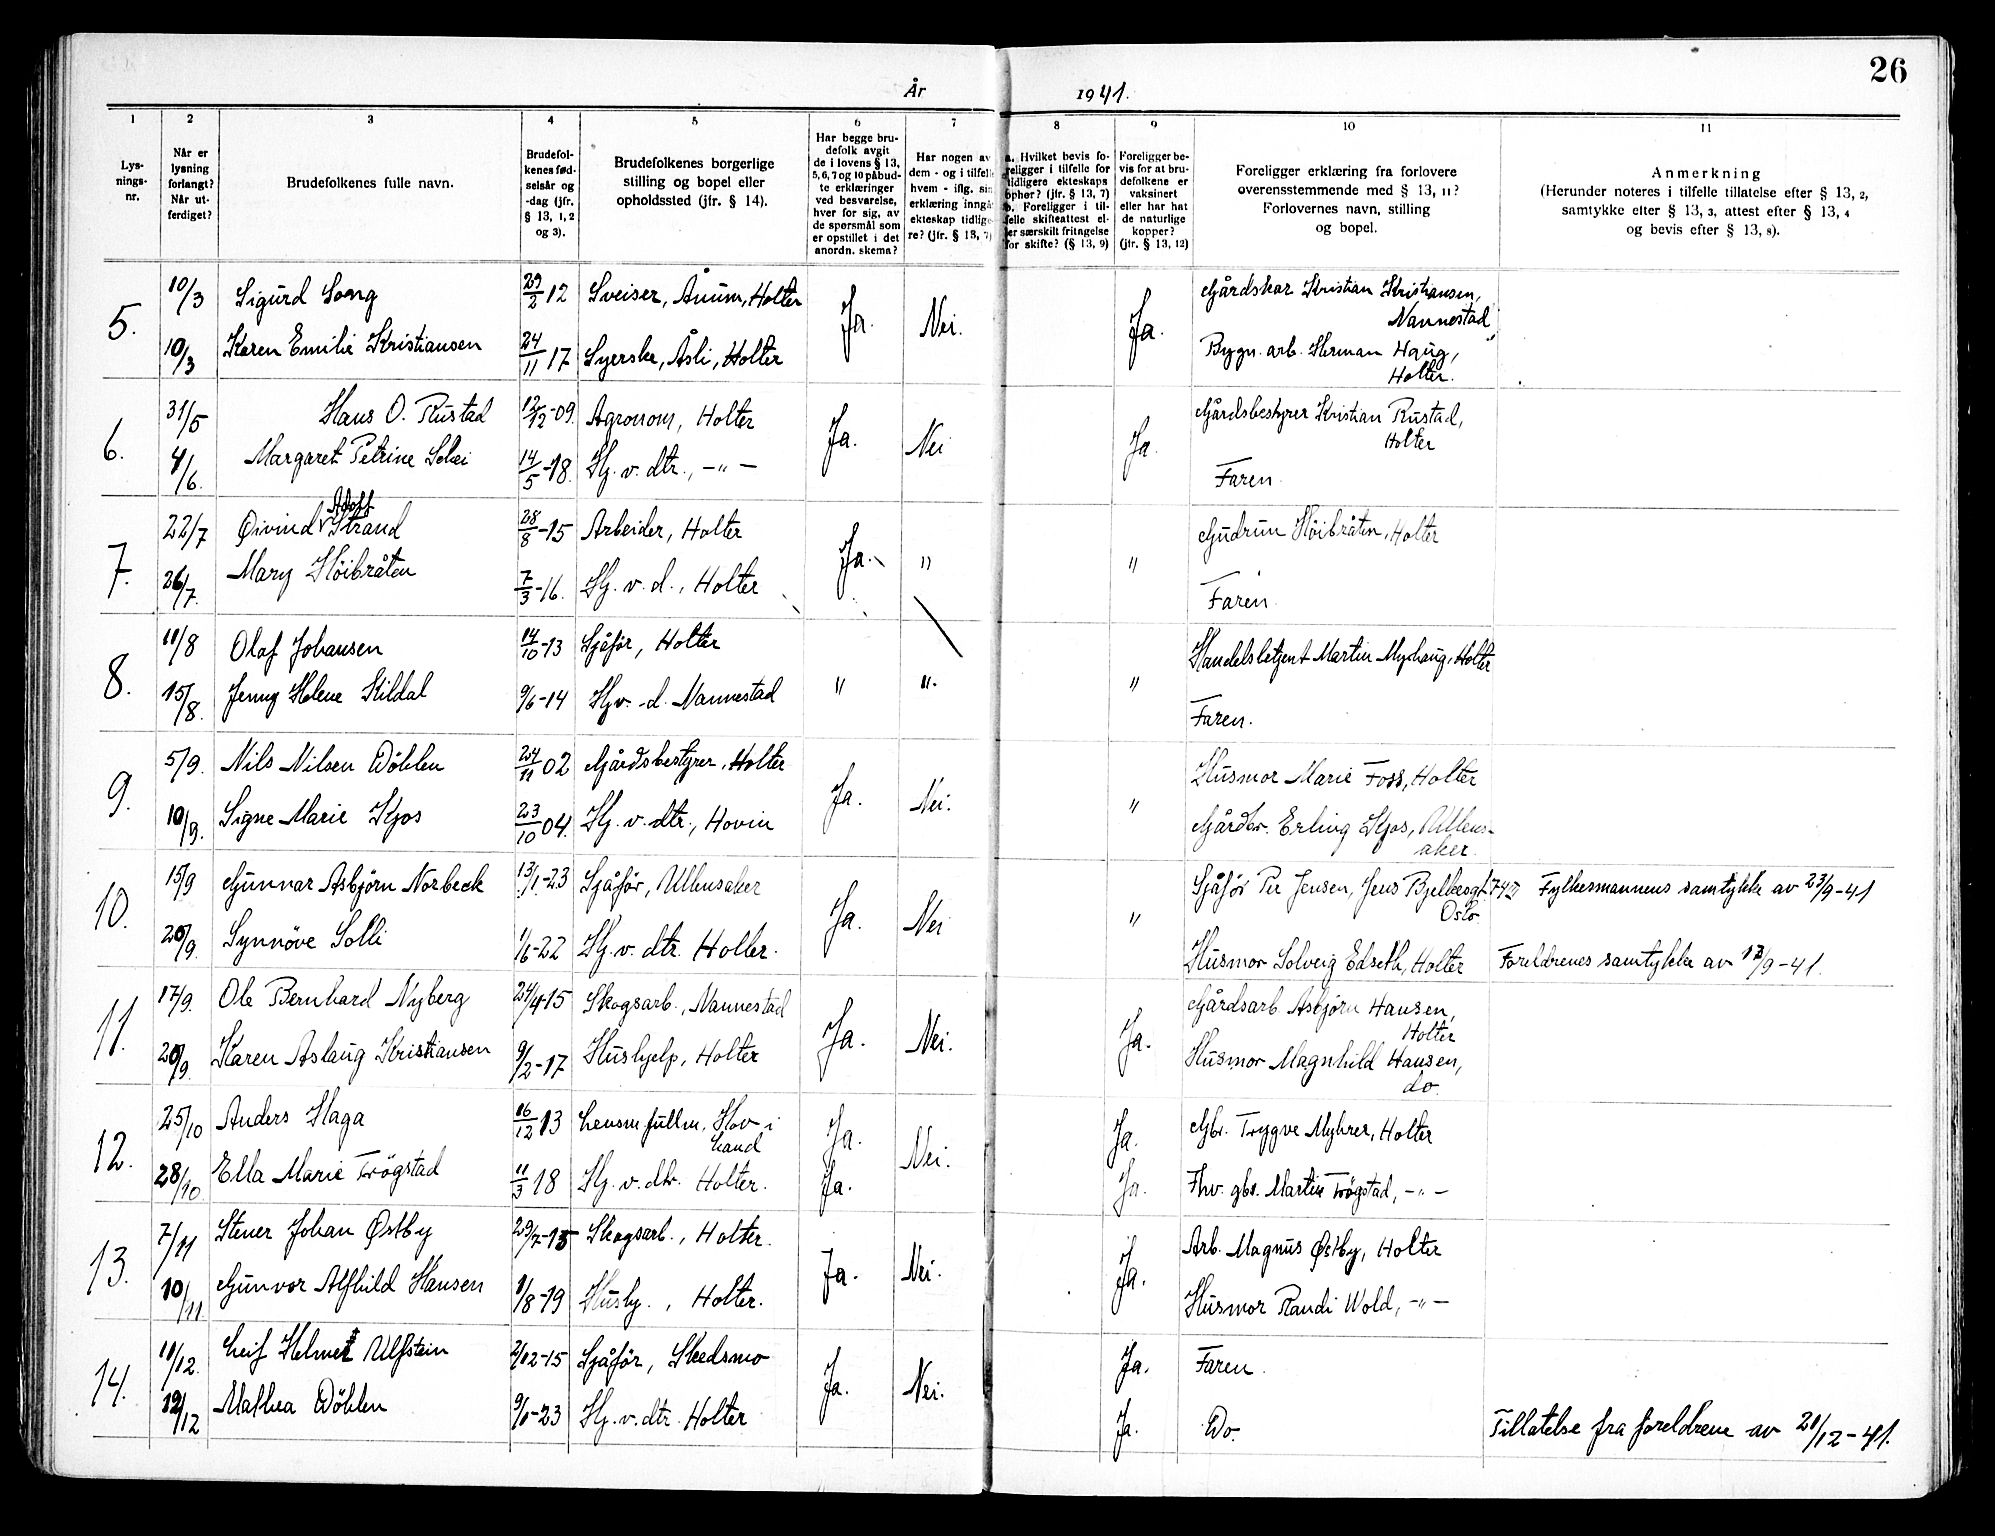 26
År 1941.
1 2 3 4 5 6 7 8 9 10 11
Lys-
nings-
nr.
Når er
lysning
forlangt?
Når ut-
ferdiget?
Brudefolkenes fulle navn.
Brudefol-
kenes fød-
selsår og
-dag (jfr.
§ 13, 1, 2
og 3).
Brudefolkenes borgerlige
stilling og bopel eller
opholdssted (jfr. § 14).
Har begge bru-
defolk avgit
de i lovens § 13,
5, 6, 7 og 10 påbud-
te erklæringer
ved besvarelse,
hver for sig, av
de spørsmål som
er opstillet i det
anordn. skema?
Har nogen av
dem - og i tilfelle
hvem - iflg. sin
erklæring inngå
ekteskap tidlige-
re? (jfr. § 13, 7)
a. Hvilket bevis fo-
religger i tilfelle for
tidligere ekteskaps
ophør? (jfr. § 13, 7)
b. Foreligger i til-
felle skifteattest el-
ler særskilt fritagelse
for skifte? (§ 13, 9)
Foreligger be-
vis for at bru-
defolkene er
vaksinert
eller har hat
de naturlige
kopper?
(jfr. § 13, 12)
Foreligger erklæring fra forlovere
overensstemmende med § 13, 11?
Forlovernes navn, stilling
og bopel.
Anmerkning
(Herunder noteres i tilfelle tillatelse efter § 13, 2,
samtykke efter § 13, 3, attest efter § 13, 4
og bevis efter § 13, 8).
5. 10/3 Sigurd Song 29/2 12 Sveiser, Åmum, Holter Ja. Nei. Ja. Gårdskar Kristian Kristiansen,
Nannestad
10/3 Karen Emilie Kristiansen 24/11 17 Syerske, Åsli, Holter Bygn. arb. Herman Haug,
Holter.
6. 31/5 Hans O. Rustad 12/12-09. Agronom, Holter Ja. Nei Ja. Gårdsbestyrer Kristian Rustad,
Holter
4/6. Margaret Petrine Schei 14/5-18. Hj. v. dtr., -"- Faren.
Adolf
7. 22/7 Øivind Strand 28/8-15 Arbeider, Holter Ja. " " Gudrun Höibråten, Holter
26/7. Mary Höibråten 7/3-16. Hj. v. d., Holter Faren.
8. 11/8 Olaf Johansen 14/10-13 Sjåfør, Holter " " " Handelsbetjent Martin Myrhaug, Holter
15/8. Jenny Helene Kildal 9/6-14 Hjv. d. Nannestad Faren.
9. 5/9. Nils Nilsen Döhlen 24/11 02 Gårdsbestyrer, Holter Ja. Nei. " Husmor Marie Foss, Holter
10/9. Signe Marie Kjos 23/10 04. Hj. v. dtr., Hovin Gårdbr. Erling Kjos, Ullens-
aker.
10. 15/9 Gunnar Asbjörn Norbeck 13/1-23 Sjåför, Ullensaker Ja. Nei " Sjåför Per Jensen, Jens Bjelkesgt. 74 Fylkesmannens samtykke av 23/9-41
Oslo
20/9. Synnöve Solli 1/6-22 Hj. v. dtr. Holter. Husmor Solveig Edseth, Holter Foreldrenes samtykke av 12/9-41.
11. 17/9. Ole Bernhard Nyberg 24/4-15 Skogsarb., Nannestad Ja. Nei. Ja. Gårdsarb Asbjörn Hansen,
Holter
20/9. Karen Aslaug Kristiansen 9/2-17 Hushjelp, Holter Husmor Magnhild Hansen,
do.
12. 25/10 Anders Haga 16/12 13 Lensm fullm, Hov i
Land Ja. Nei. Ja. Gbr. Trygve Myhrer, Holter
28/10. Ella Marie Trögstad 11/3 18 Hj. v. dtr. Holter. Ja. Ja. Fhv. gbr. Martin Trögstad, -"-
13. 7/11 Stener Johan Østby 29/7-15 Skogsarb., Holter. Ja. Nei. Ja. Arb. Magnus Østby, Holter
10/11 Gunvor Alfhild Hansen 1/8-19 Hushj., Holter. Husmor Randi Wold, -"-
14. 11/12. Leif Helmer Ulfstein 2/12-15 Sjåför, Skedsmo Ja. Nei. Ja. Faren.
12/12 Mathea Döhlen 9/1-23 Hj. v. dtr. Holter Ja. Do. Tillatelse fra foreldrene av 21/12-41.